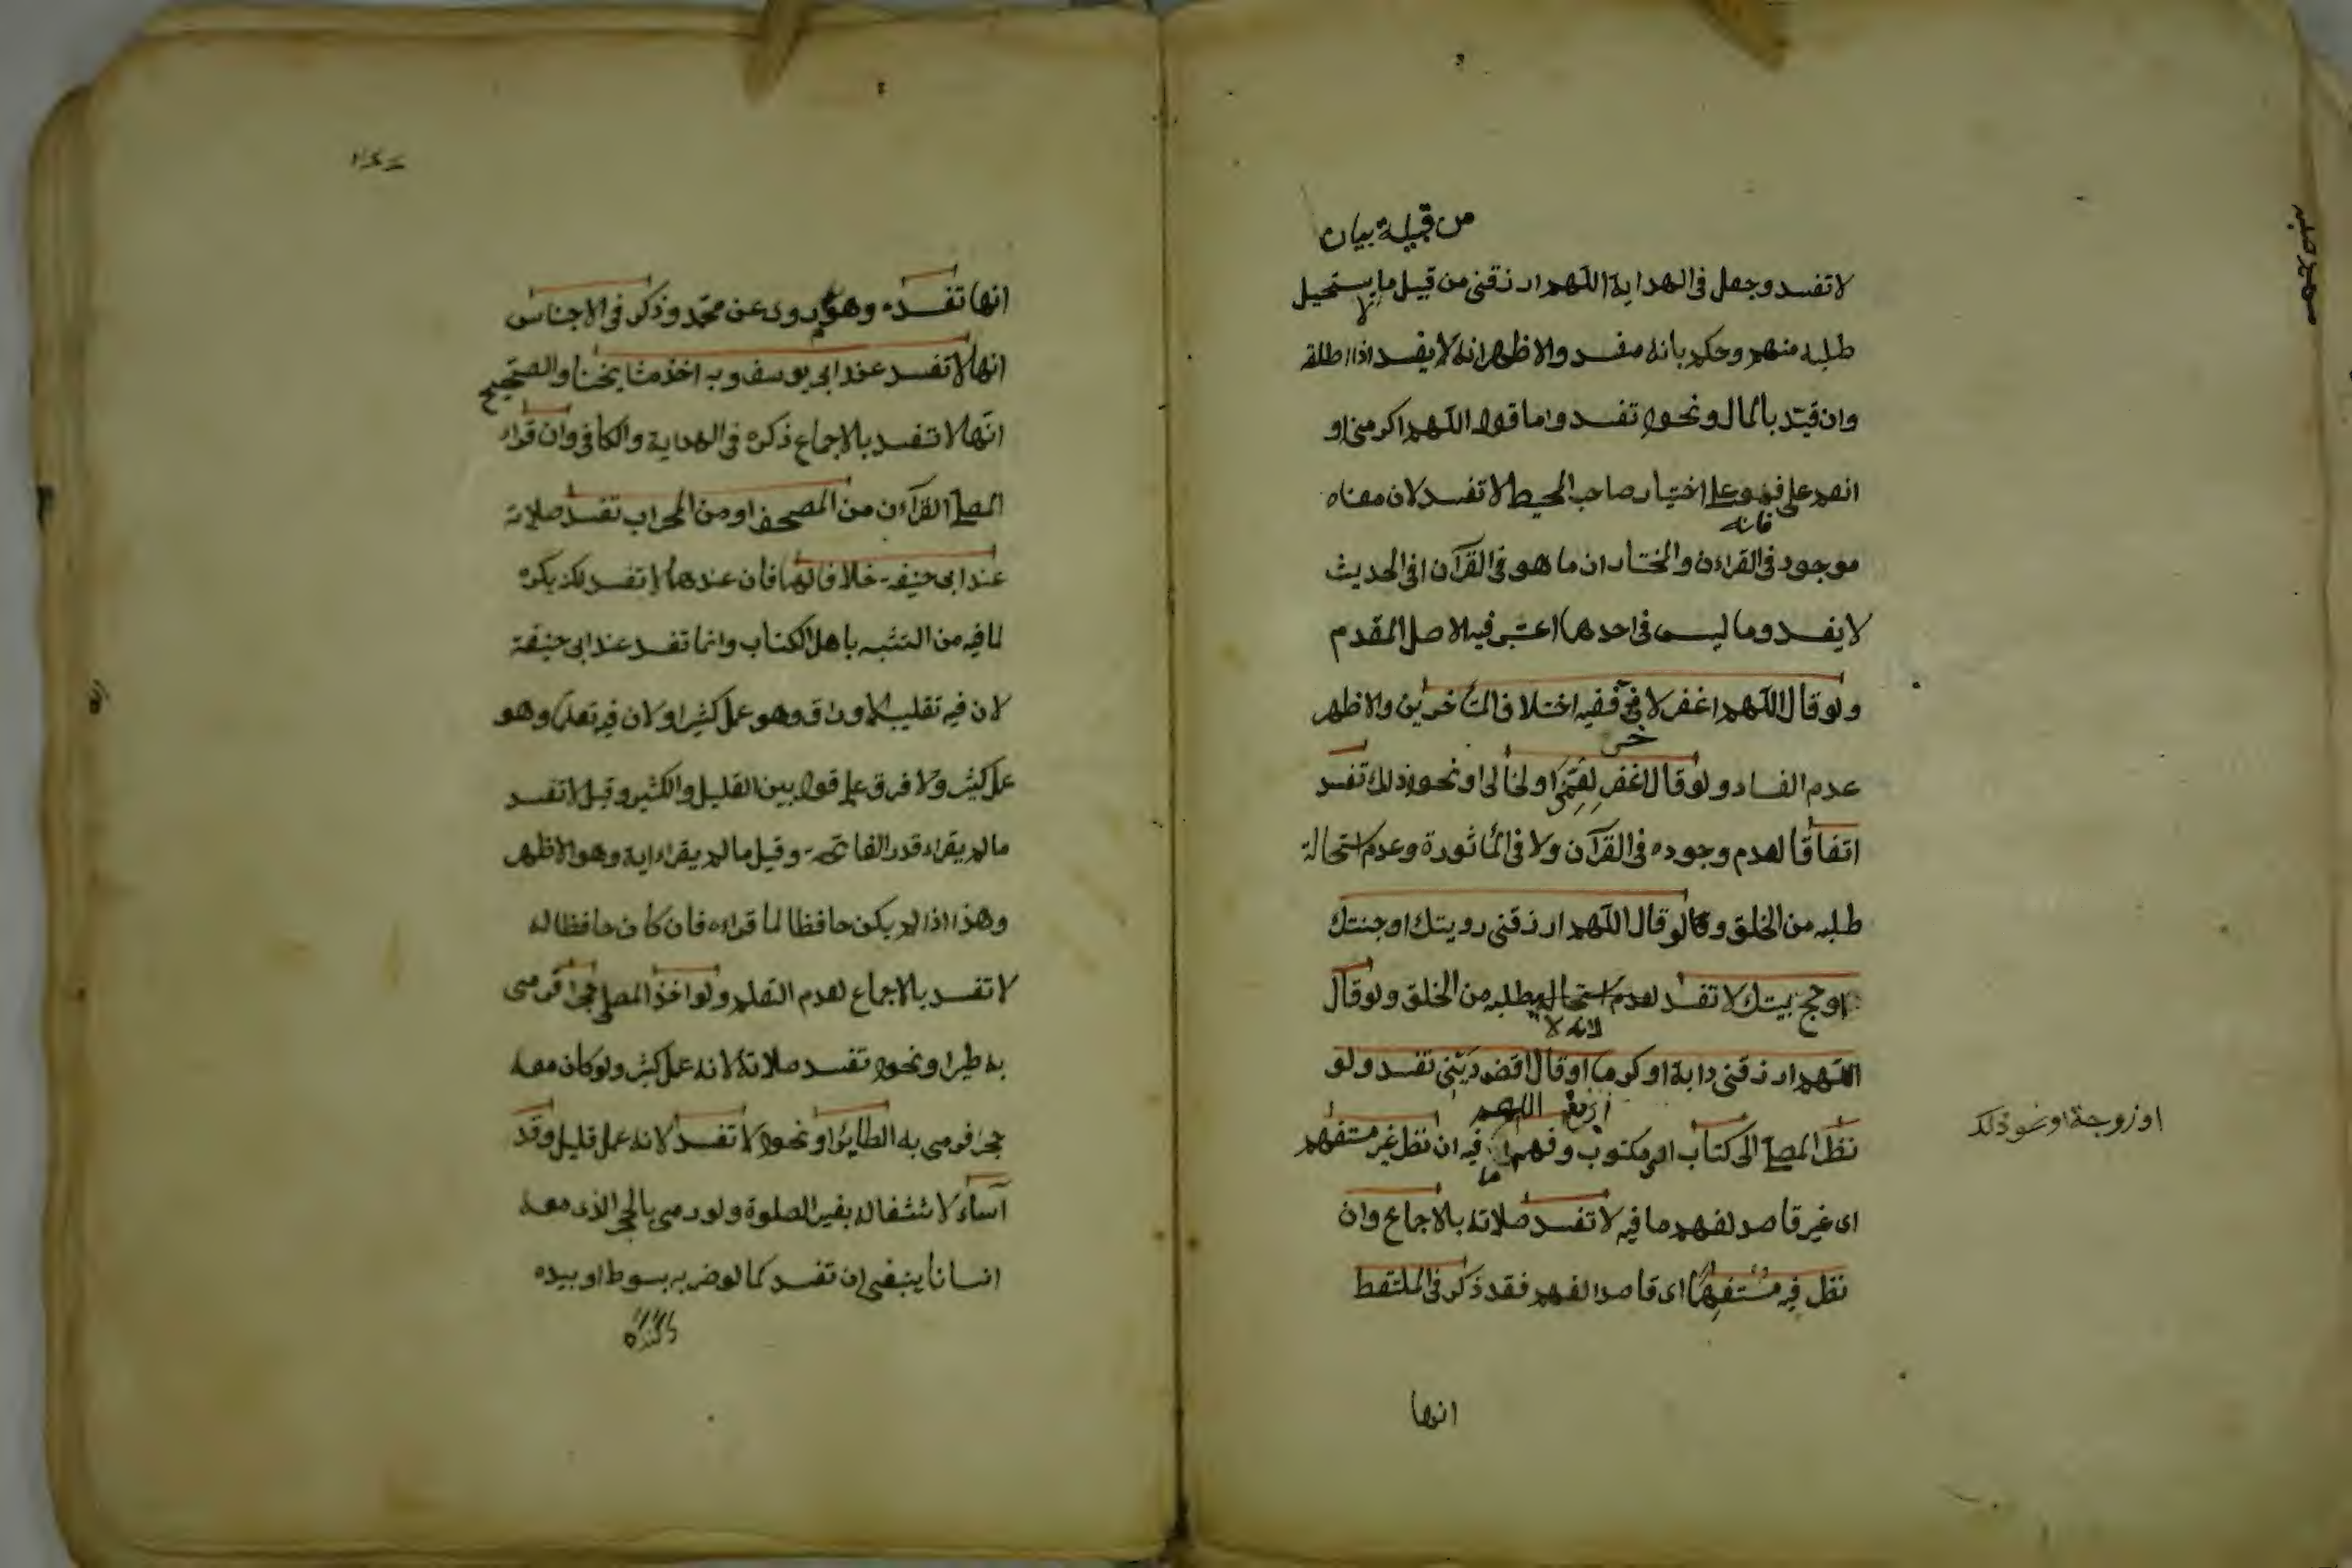 من قبيلة بيان
لا تفسد وجعل في الهداية اللهم ارزقني من قبيل ما يستحيل
لا
طلبه منهم وحكم بانه مفسد والاظهر انه لا يفسد اذا اطلقه
وان قيّد بالمال ونحوه تفسد واما قوله اللهم اكرمني او
انعم علي فهو علي اختيار صاحب المحيط لا تفسد لان معناه
فانه
موجود في القراءن والمختار ان ما هو في القرآن او في الحديث
لا يفسد وما ليس في احدهما اعتبر فيه الاصل المقدم
ولو قال اللهم اغفر لاخي ففيه اختلاف المتأخرين والاظهر
عدم الفساد ولو قال اغفر لعمّي او لخالي او نحو ذلك تفسد
اتفاقا لعدم وجوده في القرآن ولا في المأثورة وعدم استحالة
طلبه من الخلق ولو قال اللهم ارزقني رويتك او جنتك
او حج بيتك لا تفسد لعدم استحالة طلبه من الخلق ولو قال
لانه لا
اللهم ارزقني دابة او كرما او قال اقض ديني تفسد ولو
ارزقني اللهم
او زوجة او نحو ذلك
نظر المصلي الى كتاب اي مكتوب وفهم ما فيه ان نظر غير مستفهم
اى غير قاصد لفهم ما فيه لا تفسد صلاته بالاجماع وان
نظر فيه مستفهما اى قاصدا لفهم فقد ذكر في الملتقط
انها
انها تفسد وهو مروى عن محمّد وذكر في الاجناس
انها لا تفسد عند ابي يوسف وبه اخذ مشايخنا والصحيح
انها لا تفسد بالاجماع ذكره في الهداية والكافي وان قراء
المصلي القرآءن من المصحف او من المحراب تفسد صلاته
عند ابى حنيفة خلافا لهما فان عندهما لا تفسد لكن يكره
لما فيه من التشبه باهل الكتاب وانما تفسد عند ابى حنيفة
لان فيه تقليب الاوراق وهو عمل كثير او لان فيه تعلما وهو
عمل كثير ولا فرق علي قوله بين القليل والكثير وقيل لا تفسد
ما لم يقراء قدر الفاتحة وقيل ما لم يقراء اية وهو الاظهر
وهذا اذا لم يكن حافظا لما قراءه فان كان حافظا له
لا تفسد بالاجماع لعدم التعلم ولو اخذ المصلي حجرا فرمى
به طيرا ونحوه تفسد صلاته لانه عمل كثير ولو كان معه
حجر فرمى به الطاير او نحوه لا تفسد لانه عمل قليل وقد
آساء لاشتغاله بغير الصلوة ولو رمى بالحجر الذى معه
انسانا ينبغى ان تفسد كما لو ضربه بسوط او بيده